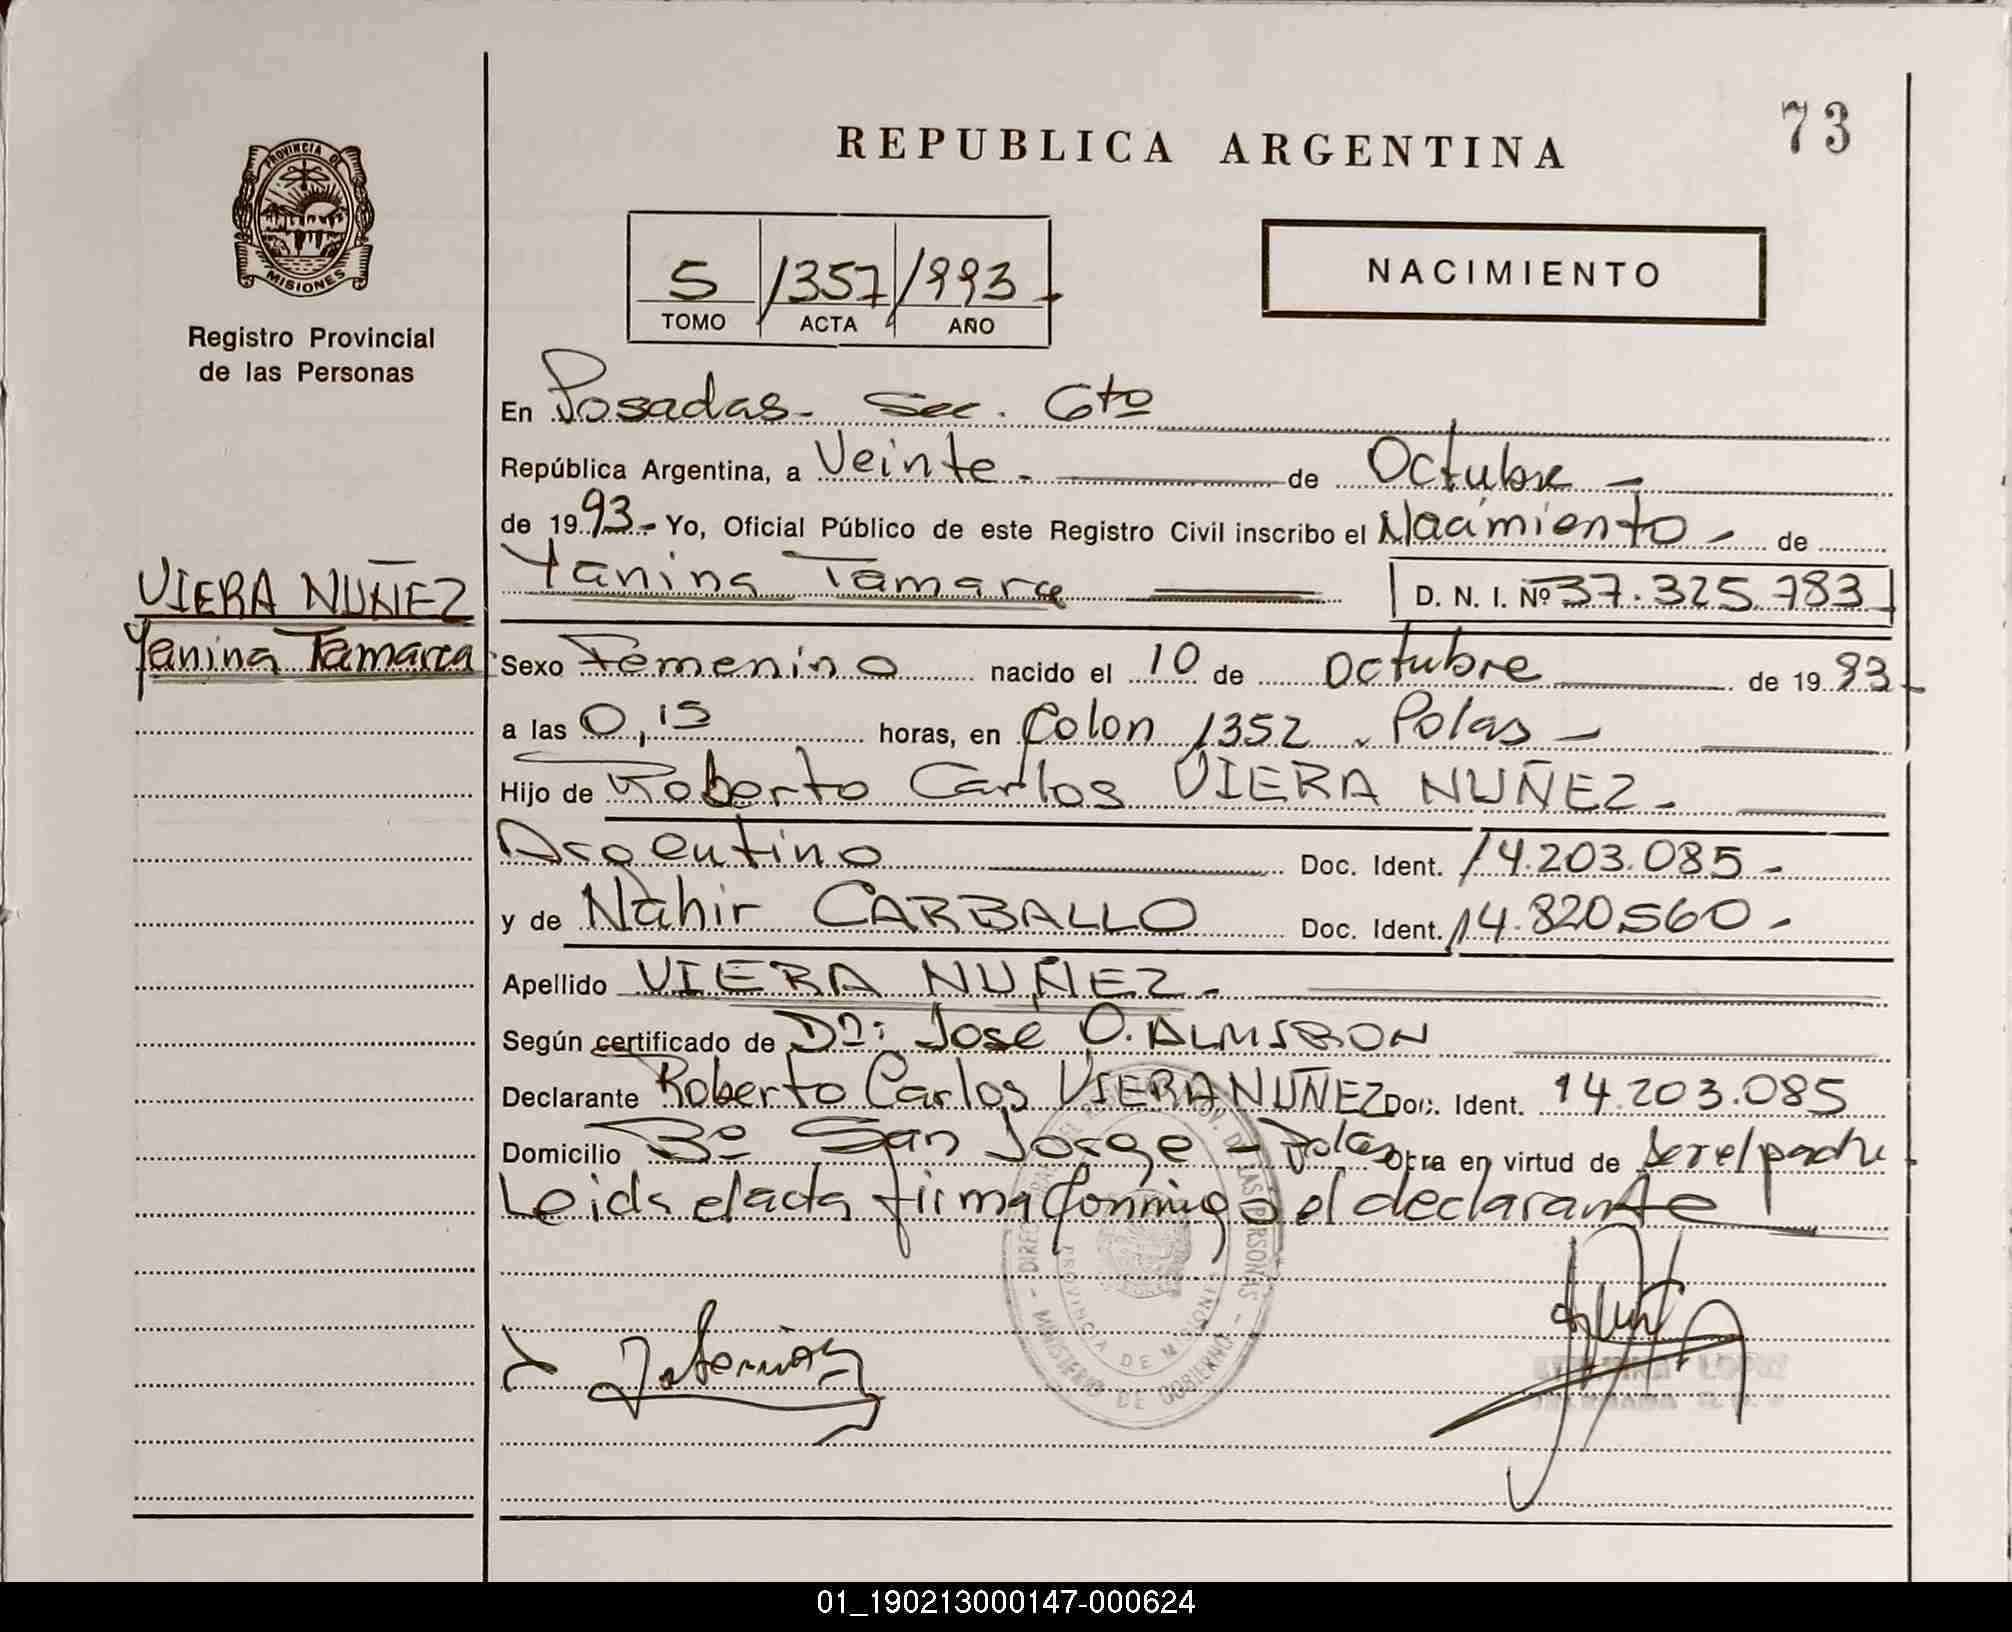 73
REPUBLICA ARGENTINA
PROVINCIA DE
MISIONES
Registro Provincial
de las Personas
5 /1357/ 1993
TOMO ACTA AÑO
NACIMIENTO
En Posadas - Sec. 6to
República Argentina, a Veinte - de Octubre -
de 1993 - Yo, Oficial Público de este Registro Civil inscribo el Nacimiento - de
Yanina Tamara D. N. I. Nº 37.325.783
VIERA NUÑEZ
Yanina Tamara
Sexo Femenino nacido el 10 de Octubre de 1993 -
a las 0,15 horas, en Colon 1352 - Pdas -
Hijo de Roberto Carlos VIERA NUÑEZ -
Argentino Doc. Ident. 14.203.085 -
y de Nahir CARBALLO Doc. Ident. 14.820560 -
Apellido VIERA NUÑEZ -
Según certificado de Dr: José O. ALMIRON
Declarante Roberto Carlos VIERA NUÑEZ Doc. Ident. 14.203.085
Domicilio Bº San Jorge - Pdas Obra en virtud de ser el padre
Leida el acta firma conmigo el declarante
PROVINCIA DE MISIONES
MINISTERIO DE GOBIERNO
01_190213000147-000624